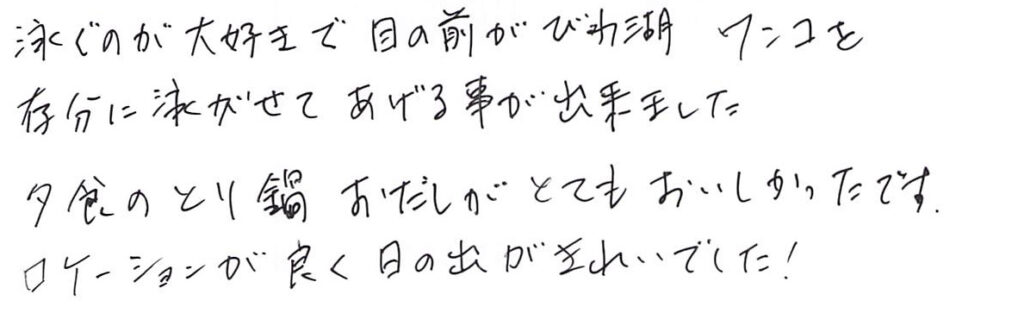 泳ぐのが大好きで目の前がびわ湖 ワンコを
存分に泳がせてあげる事が出来ました
夕食のとり鍋 おだしがとてもおいしかったです.
ロケーションが良く日の出がきれいでした!